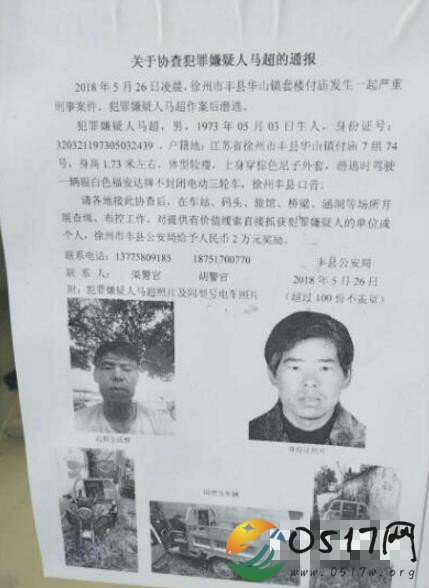 关于协查犯罪嫌疑人马超的通报
2018年5月26日凌晨，徐州市丰县华山镇套楼付庙发生一起严重
刑事案件，犯罪嫌疑人马超作案后潜逃。
犯罪嫌疑人马超，男，1973年05月03日生人，身份证号：
320321197305032439，户籍地：江苏省徐州市丰县华山镇付庙7组74
号，身高1.73米左右，体型较瘦，上身穿棕色尼子外套，潜逃时驾驶
一辆银白色福安达牌不封闭电动三轮车，徐州丰县口音。
请各地接此协查后，在车站、码头、旅馆、桥梁、涵洞等场所开
展查缉、布控工作。对提供有价值线索直接抓获犯罪嫌疑人的单位或
个人，徐州市丰县公安局给予人民币2万元奖励。
联系电话：13775809185 18751700770 丰县公安局
联系人：荣警官 胡警官 2018年5月26日
附：犯罪嫌疑人马超照片及同型号电车照片 （超过100份不盖章）
近期生活照 身份证照片
同型号车辆
0517网
www.0517w.org